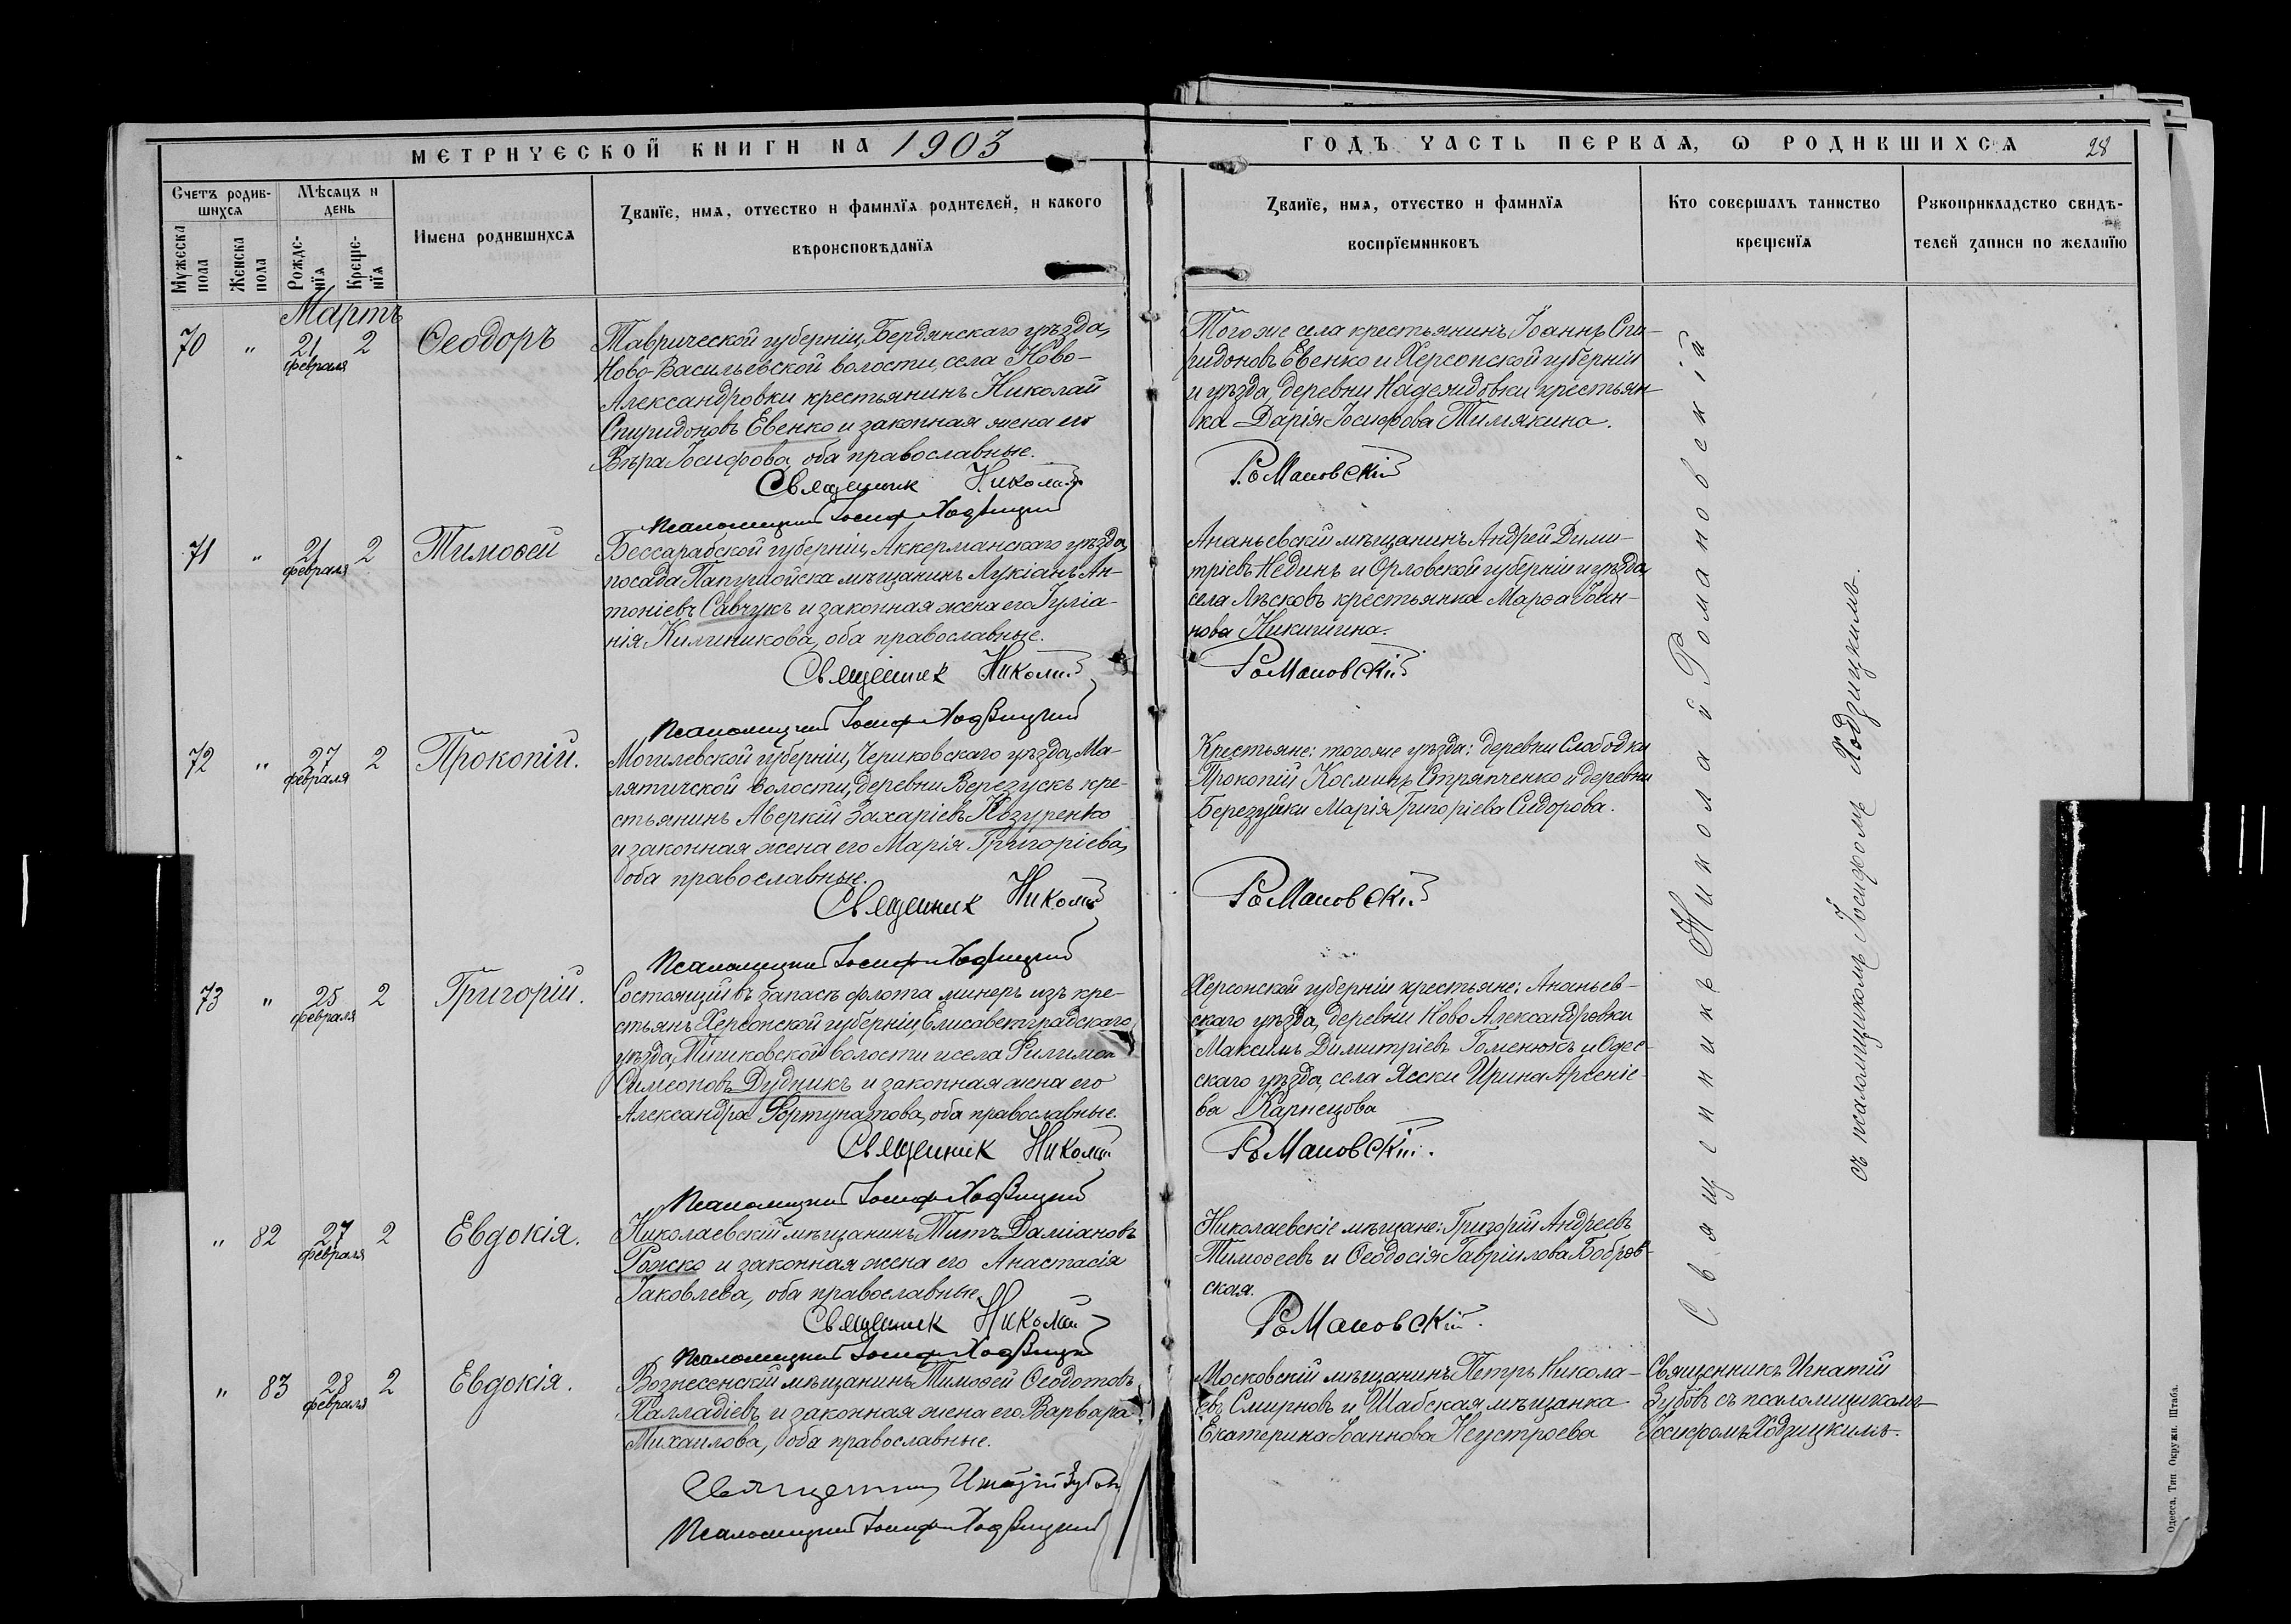 МЕТРИЧЕСКОЙ КНИГИ НА 1903
ГОДЪ ЧАСТЬ ПЕРВАѦ, Ѡ РОДИВШИХСѦ
28
Счетъ родив-
шихсѧ
Мѣсѧцъ и
день
Мужеска
пола
Женска
пола
Рожде-
нїѧ
Креще-
нїѧ
Имена родившихсѧ
Званїе, имѧ, отчество и фамилїѧ родителей, и какого
вѣроисповѣданїѧ
Званїе, имѧ, отчество и фамилїѧ
воспрїемниковъ
Кто совершалъ таинство
крещенїѧ
Рукоприкладство свидѣ-
телей записи по желанїю
Мартъ
70 " 21 февраля 2 Ѳеодоръ
Таврической губерніи, Бердянскаго уѣзда,
Ново-Васильевской волости, села Ново-
Александровки крестьянинъ Николай
Спиридоновъ Евенко и законная жена его
Вѣра Іосифова, оба православные.
Священник Николай
Псаломщикъ Іосиф Ходзицкий
Того же села крестьянинъ Іоаннъ Спи-
ридоновъ Евенко и Херсонской губерніи
и уѣзда, деревни Надеждовки крестьян-
ка Дарія Іосифова Тимякина.
Романовскій
71 " 21 февраля 2 Тимоѳей
Бессарабской губерніи, Аккерманскаго уѣзда,
посада Папушойска мѣщанинъ Лукіанъ Ан-
тоніевъ Савчукъ и законная жена его Іуліа-
нія Килиникова, оба православные.
Священник Николай
Псаломщикъ Іосиф Ходзицкий
Ананьевскій мѣщанинъ Андрей Дими-
тріевъ Нединъ и Орловской губерніи и уѣзда,
села Лѣсковъ крестьянка Марѳа Іоан-
нова Никишина.
Романовскій
72 " 27 февраля 2 Прокопій.
Могилевской губерніи, Чериковскаго уѣзда, Ма-
лятичской волости, деревни Верезускъ кре-
стьянинъ Аверкій Захаріевъ Козуренко
и законная жена его Марія Григоріева,
оба православные.
Священник Николай
Псаломщикъ Іосиф Ходзицкий
Крестьяне: того же уѣзда: деревни Слободки
Прокопій Косминъ Стряпченко и деревни
Березушки Марія Григоріева Сидорова.
Романовскій
73 " 25 февраля 2 Григорій.
Состоящій въ запасѣ флота минеръ изъ кре-
стьянъ Херсонской губерніи, Елисаветградскаго
уѣзда, волости и села Филимон
Симеоновъ Дудникъ и законная жена его
Александра Фортунатова, оба православные.
Священник Николай
Псаломщикъ Іосиф Ходзицкий
Херсонской губерніи крестьяне: Ананьев-
скаго уѣзда, деревни Ново Александровки
Максимъ Димитріевъ Гоменюкъ и Одес-
скаго уѣзда, села Яски Ирина Арсеніе-
ва Карнецова
Романовскій.
" 82 27 февраля 2 Евдокія.
Николаевскій мѣщанинъ Титъ Даміановъ
Рожко и законная жена его Анастасія
Іаковлева, оба православные.
Священник Николай
Псаломщикъ Іосиф Ходзицкий
Николаевскіе мѣщане: Григорій Андреевъ
Тимоѳеевъ и Ѳеодосія Гавріилова Бобров-
ская.
Романовскій.
" 83 28 февраля 2 Евдокія.
Вознесенскій мѣщанинъ Тимоѳей Ѳеодотовъ
Палладіевъ и законная жена его Варвара
Михаилова, оба православные.
Священникъ Игнатій Зубовъ
Псаломщикъ Іосиф Ходзицкий
Московскій мѣщанинъ Петръ Никола-
евъ Смирновъ и Шабская мѣщанка
Екатерина Іоаннова Неустроева
Священникъ Николай Романовскій
съ псаломщикомъ Іосифомъ Ходзицкимъ.
Священникъ Игнатій
Зубовъ съ псаломщикомъ
Іосифомъ Ходзицкимъ.
Одесса. Тип. Окружн. Штаба.